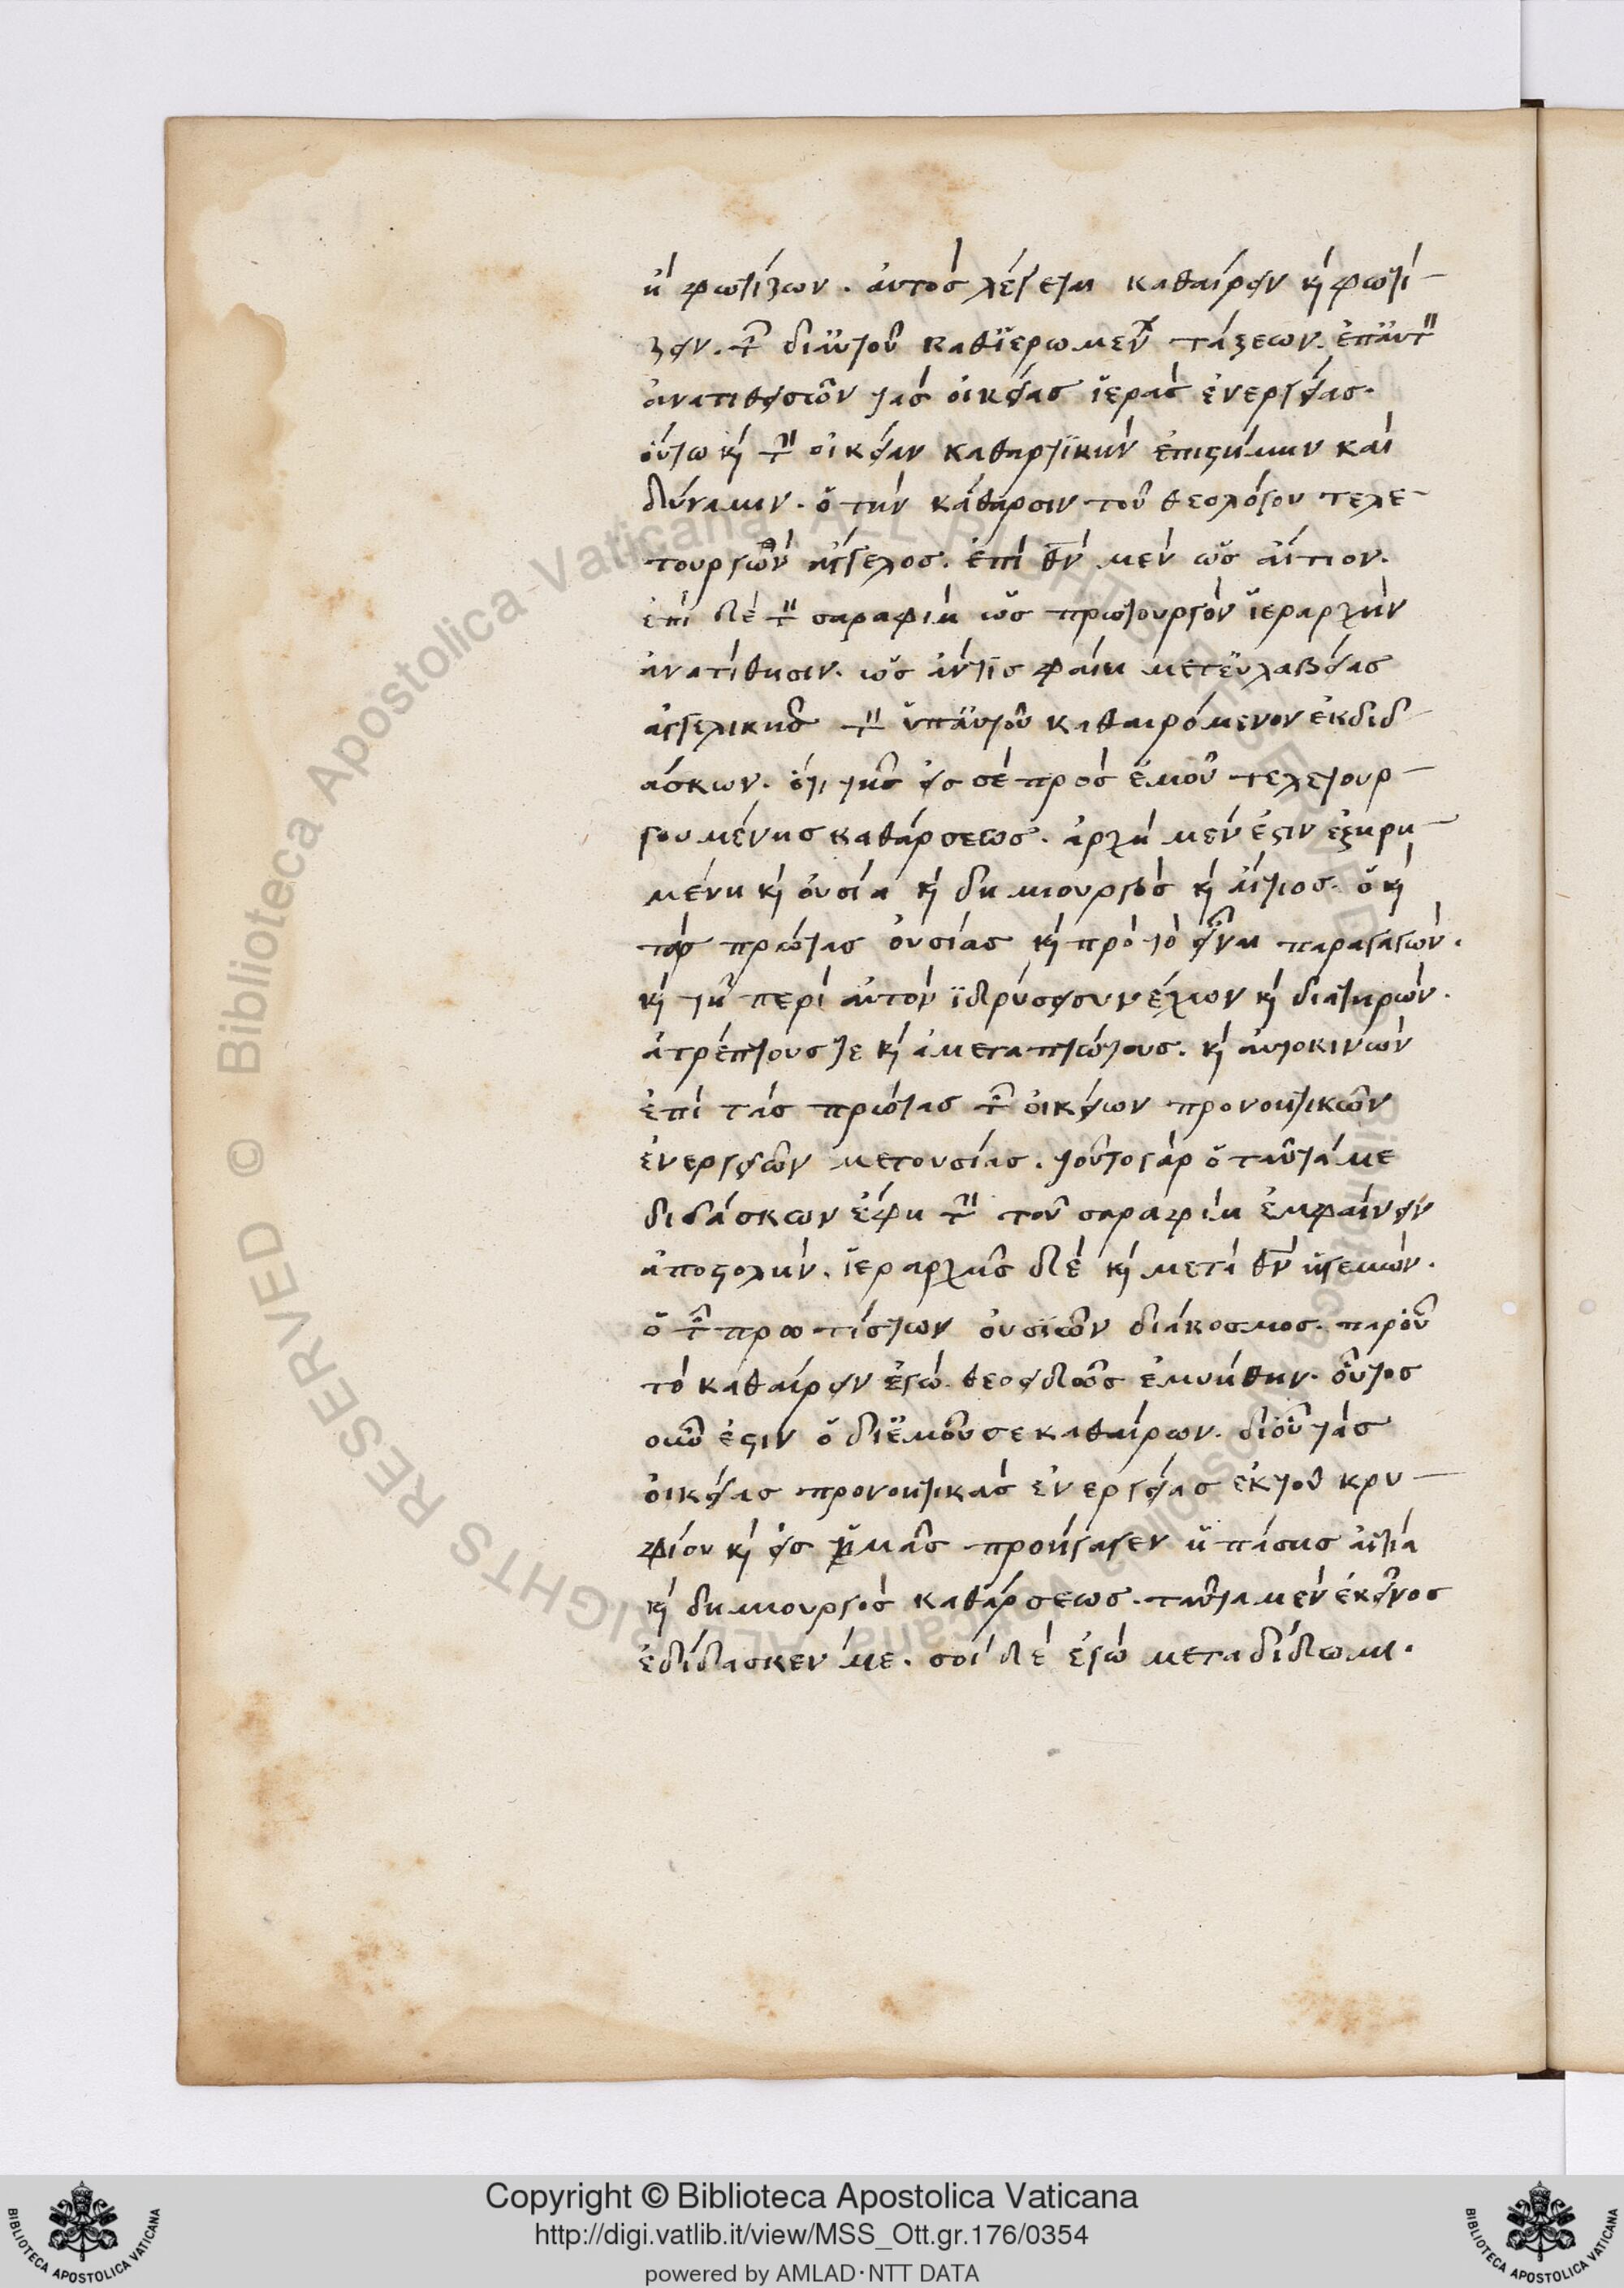 ἢ φωτίζων. αὐτὸς λέγεται καθαίρειν κὴ φωτί-
ζειν. τῶν διαὐτοῦ καθιερωμένων τάξεων. ἐπαὐτὴν
ἀνατιθεισῶν τὰς οἰκείας ἱερὰς ἐνεργείας.
οὕτω κὴ τὴν οἰκείαν καθαρτικὴν ἐπιστήμην καὶ
δύναμιν. ὁ τὴν κάθαρσιν τοῦ θεολόγου τελε-
τουργῶν ἄγγελος. ἐπὶ θν̅ μὲν ὡς αἴτιον.
ἐπὶ δὲ τὴν σαραφὶμ ὡς πρωτουργὸν ἱεραρχὴν
ἀνατίθησιν. ὡς ἄντις φαίη μετευλαβείας
ἀγγελικῆς τὴν ὑπαὐτοῦ καθαιρόμενον ἐκδιδ-
άσκων. ὅτι τῆς εἰς σὲ πρὸς ἐμοῦ τελετουρ-
γουμένης καθάρσεως. ἀρχὴ μὲν ἐστιν ἐξηρη-
μένη κὴ οὐσία κὴ δημιουργὸς κὴ αἴτιος. ὁ κὴ
τὰς πρώτας οὐσίας κὴ πρὸ τὸ εἶναι παραγαγών.
κὴ τῇ περὶ αὐτὸν ἱδρύσει συνέχων κὴ διατηρῶν.
ἀτρέπτους τε κὴ ἀμεταπτώτους. κὴ αὐτοκινῶν
ἐπὶ τὰς πρώτας τῶν οἰκείων προνοητικῶν
ἐνεργειῶν μετουσίας. τοῦτο γὰρ ὁ ταῦτά με
διδάσκων ἔφη τὴν τοῦ σαραφὶμ ἐμφαίνειν
ἀποστολήν. ἱεραρχῆς δὲ κὴ μετὰ θν̅ ἡγεμών.
ὁ τῶν πρωτίστων οὐσιῶν διάκοσμος. παροὗ
τὸ καθαίρειν ἐγὼ θεοειδῶς ἐμυήθην. οὗτος
οὖν ἐστιν ὁ διἐμοῦ σε καθαίρων. διοὗ τὰς
οἰκείας προνοητικὰς ἐνεργείας ἐκ τοῦ κρυ-
φίου κὴ εἰς ἡμᾶς προήγαγεν ἡ πάσης αἰτία
κὴ δημιουργὸς καθάρσεως. ταῦτα μὲν ἐκεῖνος
ἐδίδασκέν με. σοὶ δὲ ἐγὼ μεταδίδωμι.
© Biblioteca Apostolica Vaticana ALL RIGHTS RESERVED
Copyright © Biblioteca Apostolica Vaticana
http://digi.vatlib.it/view/MSS_Ott.gr.176/0354
powered by AMLAD·NTT DATA
BIBLIOTECA APOSTOLICA VATICANA
BIBLIOTECA APOSTOLICA VATICANA